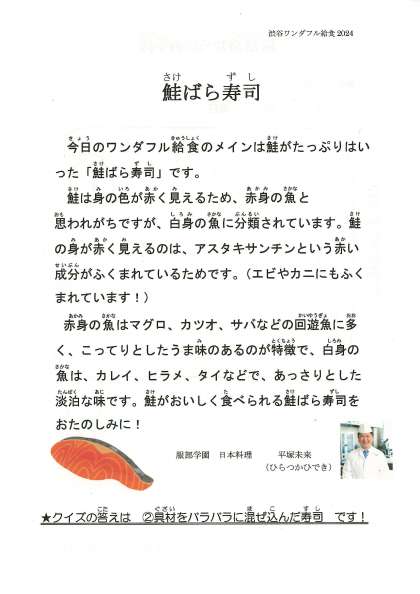 渋谷ワンダフル給食2024
鮭ばら寿司
今日のワンダフル給食のメインは鮭がたっぷりはい
った「鮭ばら寿司」です。
鮭は身の色が赤く見えるため、赤身の魚と
思われがちですが、白身の魚に分類されています。鮭
の身が赤く見えるのは、アスタキサンチンという赤い
成分がふくまれているためです。（エビやカニにもふく
まれています！）
赤身の魚はマグロ、カツオ、サバなどの回遊魚に多
く、こってりとしたうま味のあるのが特徴で、白身の
魚は、カレイ、ヒラメ、タイなどで、あっさりとした
淡泊な味です。鮭がおいしく食べられる鮭ばら寿司を
おたのしみに！
服部学園　日本料理　平塚未来
（ひらつかひでき）
★クイズの答えは　②具材をバラバラに混ぜ込んだ寿司　です！